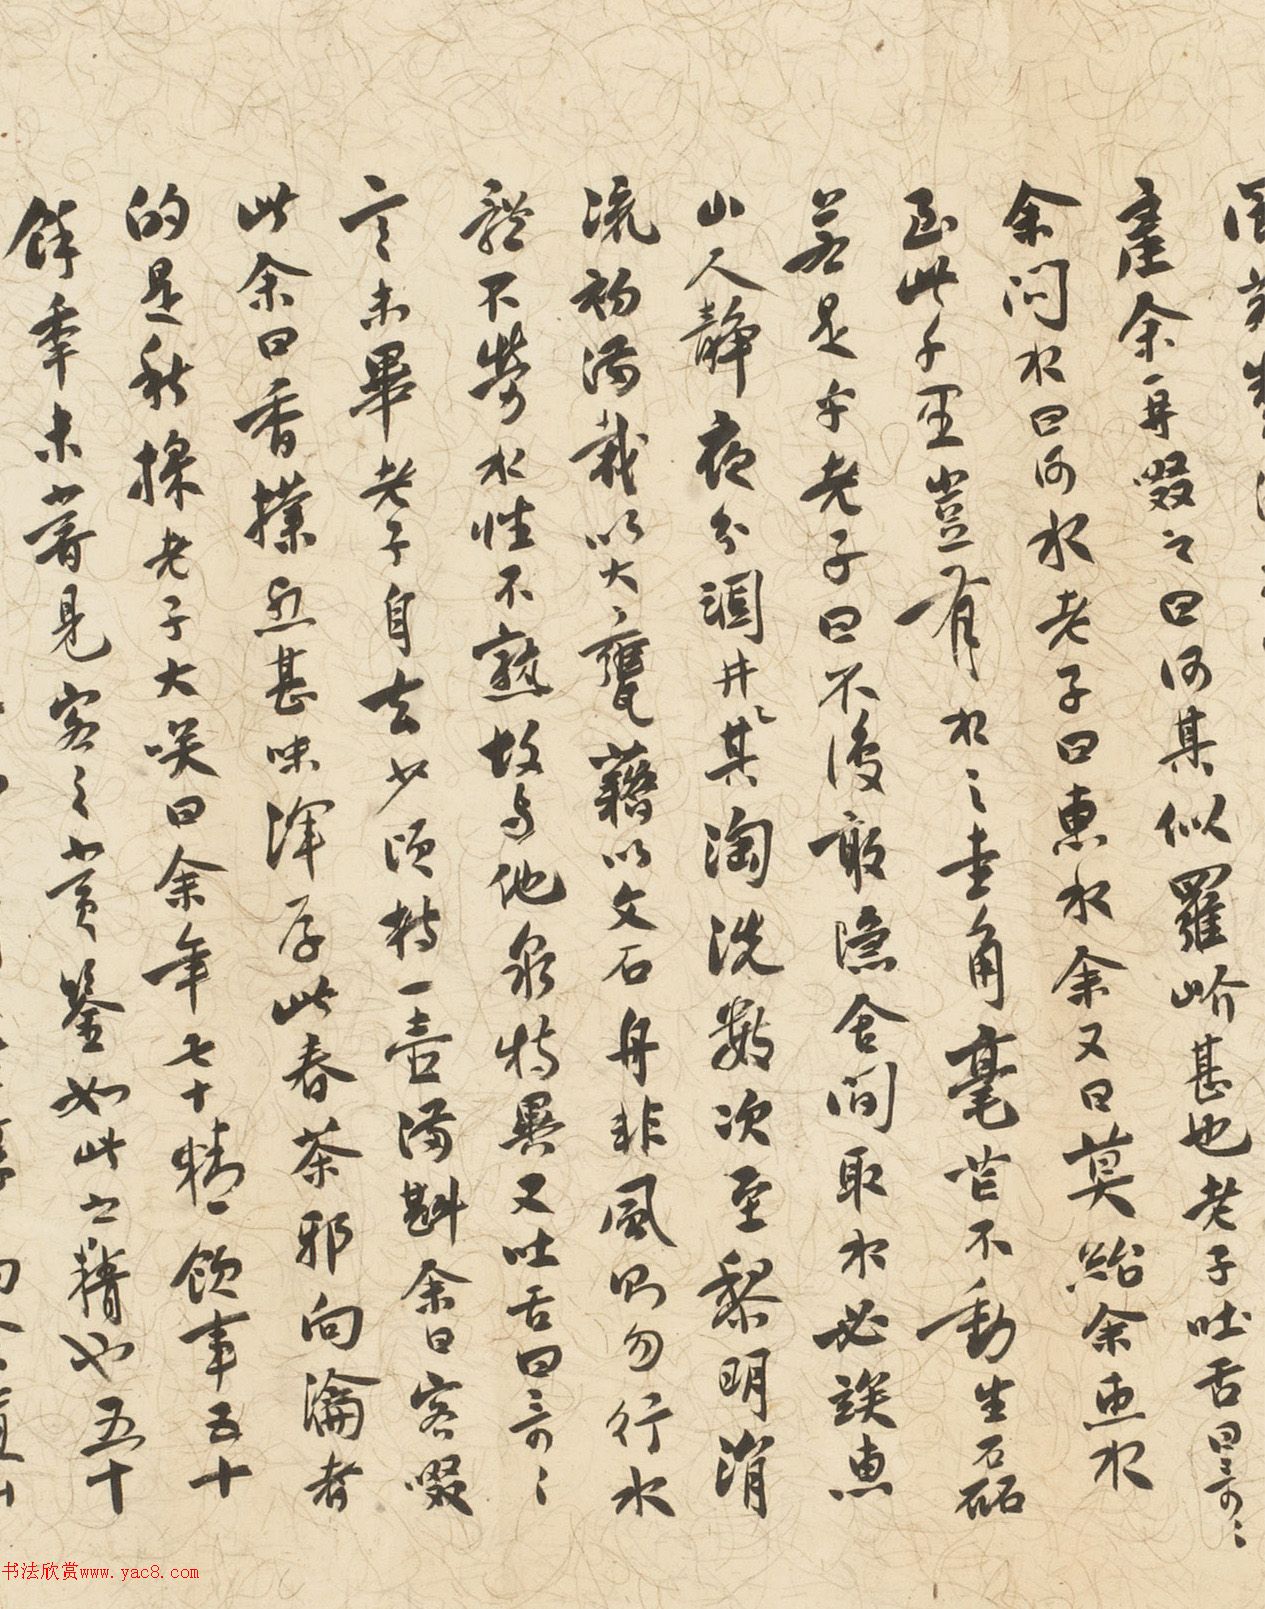 產余再啜之曰何其似羅岕甚也老子吐舌曰奇〻
余問水曰何水老子曰惠水余又曰莫紿余惠水
至此千里豈有水之圭角毫芒不動生磊
若是乎老子曰不復敢隱舍間取水必誒惠
山人靜夜分涸井〻其淘洗數次至黎明涓
流初滿栽以大甕藉以文石舟非風則勿行水
體不勞水性不熟故与他泉特異又吐舌曰奇〻
言未畢老子自去少頃持一壺滿斟余曰客啜
此余曰香撲烈甚味渾厚此春茶邪向瀹者
的是秋採老子大咲曰余年七十精飲事五十
餘季未嘗見客之賞鑒如此之精也五十
书法欣赏www.yac8.com